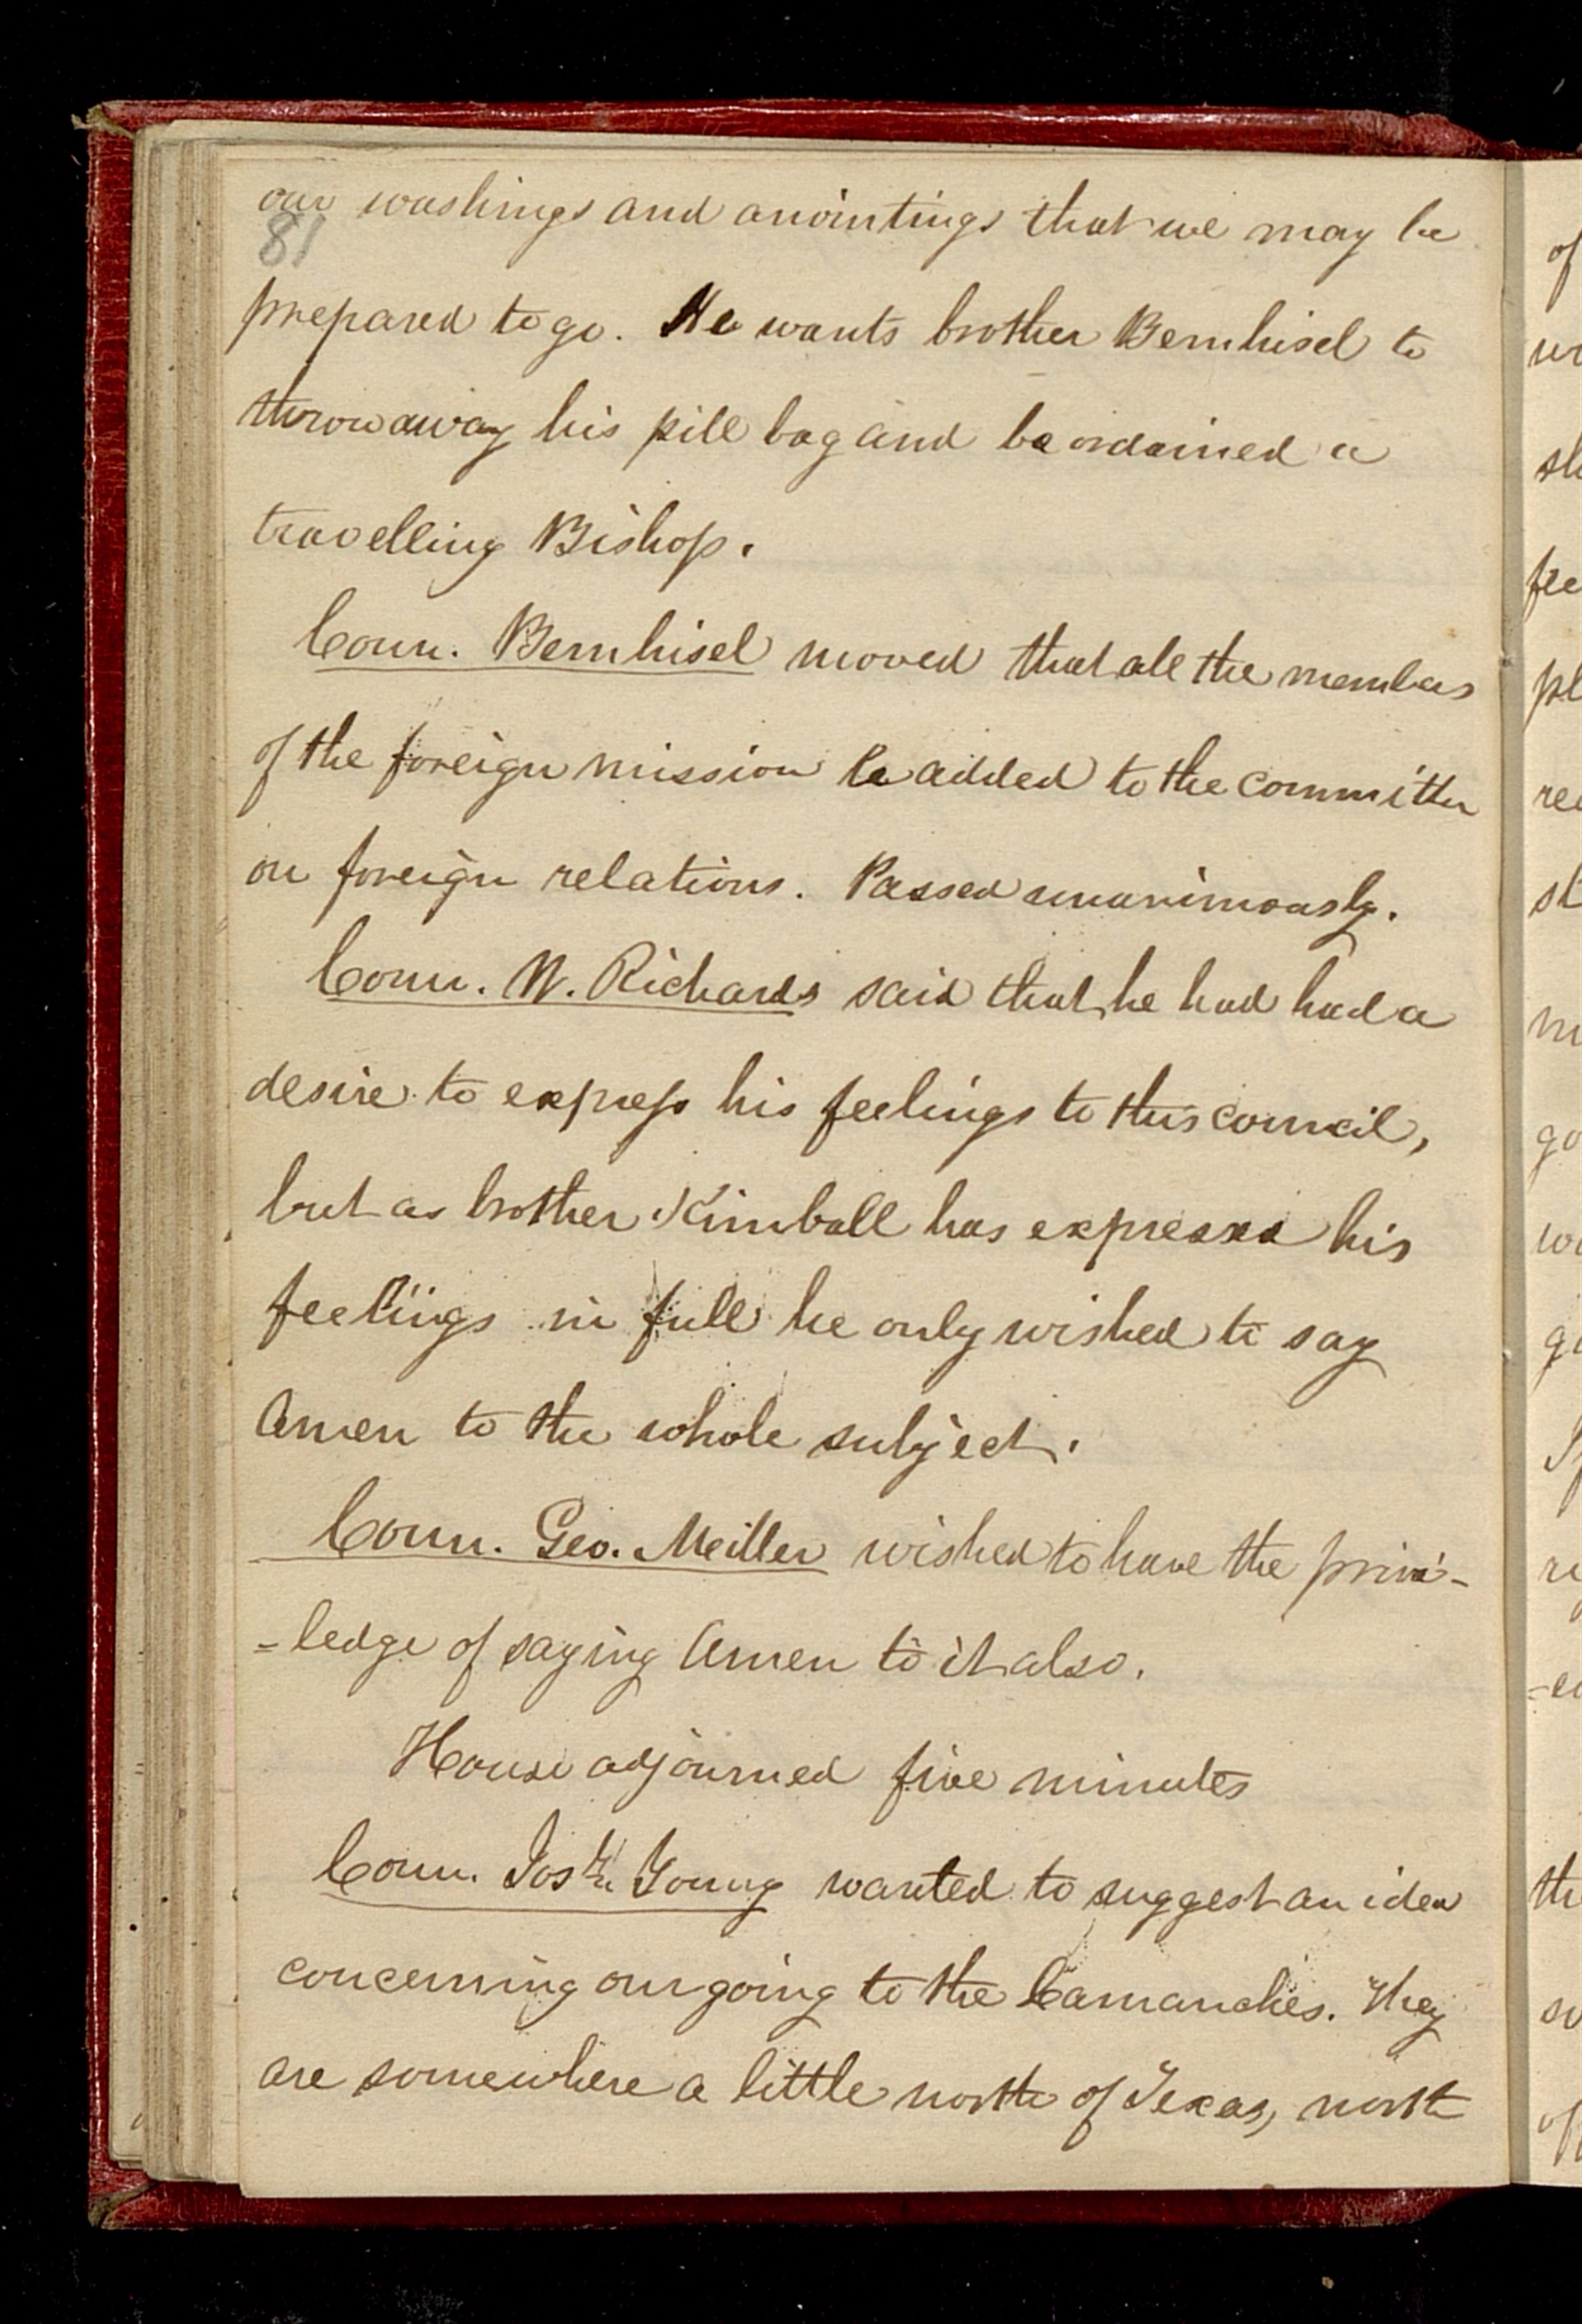 our washings and anointings that we may be
81
prepared to go. He wants brother Bernhisel to
throw away his pill bag and be ordained a
travelling Bishop.
Coun. Bernhisel moved that all the members
of the foreign mission be added to the committee
on foreign relations. Passed unanimously.
Coun. W. Richards said that he had had a
desire to express his feelings to this council,
but as brother Kimball has expressed his
feelings in full he only wished to say
Amen to the whole subject.
Coun. Geo. Meiller wished to have the privi-
=ledge of saying Amen to it also.
House adjourned five minutes
Coun. Josh. Young wanted to suggest an idea
concerning our going to the Camanches. They
are somewhere a little north of Texas, north